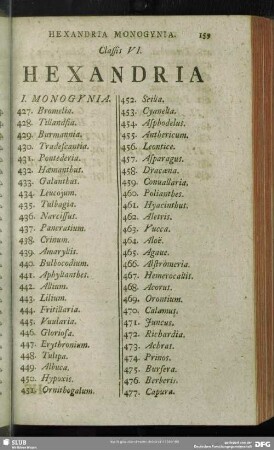 HEXANDRIA MONOGYNIA. 159
Classis VI.
HEXANDRIA
I. MONOGYNIA.
427. Bromelia.
428. Tillandsia.
429. Burmannia.
430. Tradescantia.
431. Pontederia.
432. Hæmanthus.
433. Galanthus.
434. Leucojum.
435. Tulbagia.
436. Narcissus.
437. Pancratium.
438. Crinum.
439. Amaryllis.
440. Bulbocodium.
441. Aphyllanthes.
442. Allium.
443. Lilium.
444. Fritillaria.
445. Vuularia.
446. Gloriosa.
447. Erythronium.
448. Tulipa.
449. Albuca.
450. Hypoxis.
451. Ornithogalum.
452. Scilla.
453. Cyanella.
454. Asphodelus.
455. Anthericum.
456. Leontice.
457. Asparagus.
458. Dracæna.
459. Conuallaria.
460. Polianthes.
461. Hyacinthus.
462. Aletris.
463. Yucca.
464. Aloë.
465. Agaue.
466. Alstrœmeria.
467. Hemerocallis.
468. Acorus.
469. Orontium.
470. Calamus.
471. Juncus.
472. Richardia.
473. Achras.
474. Prinos.
475. Bursera.
476. Berberis.
477. Capura.
SLUB